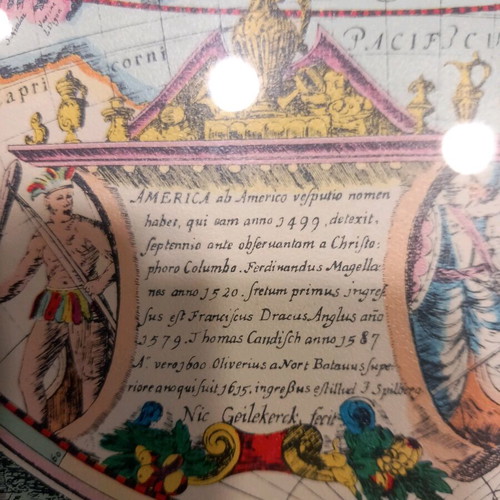 PACIFICU
corni
capri
AMERICA ab Americo vesputio nomen
habet, qui eam anno 1499, detexit.
septennio ante observantam a Christo:
phoro Columbo. Ferdinandus Magella:
nes anno 1520. fretum primus ingres
sus est Franciscus Dracus Anglus año
1579. Thomas Candisch anno 1587
Aº. vero 1600 Oliverius a Nort Batavus supe
riore anoqui fuit 1615. ingreßus est illud J Spilberg
Nic Geilekerck. fecit